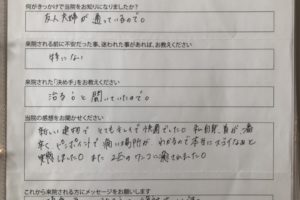 何がきっかけで当院をお知りになりましたか?
友人夫婦が通っているので。
来院される前に不安だった事、迷われた事があれば、お教えください
特にない
来院された「決め手」をお教えください
治ると聞いていたので。
当院の感想をお聞かせください
新しい建物で とてもキレイで快適でした。私自身、首が痛
ピンポイントで痛い場所が わかるので本当にスゴイなあと
実感しました。また
ワンコに癒されました。
これから来院される方にメッセージをお願いします